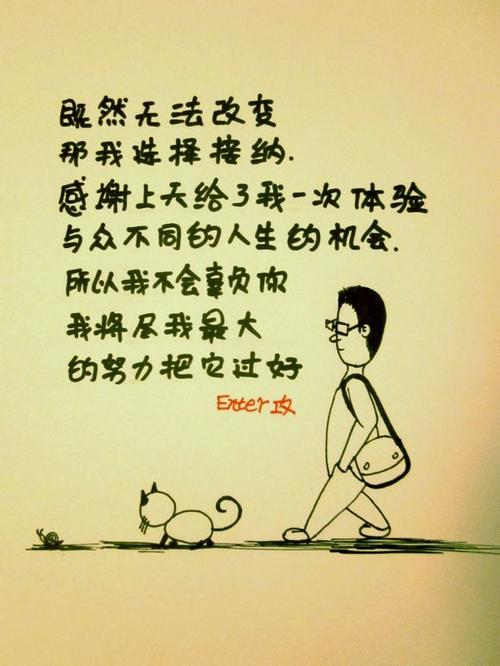 既然无法改变
那我选择接纳.
感谢上天给了我一次体验
与众不同的人生的机会.
所以我不会辜负你
我将尽我最大
的努力把它过好
Enter攻